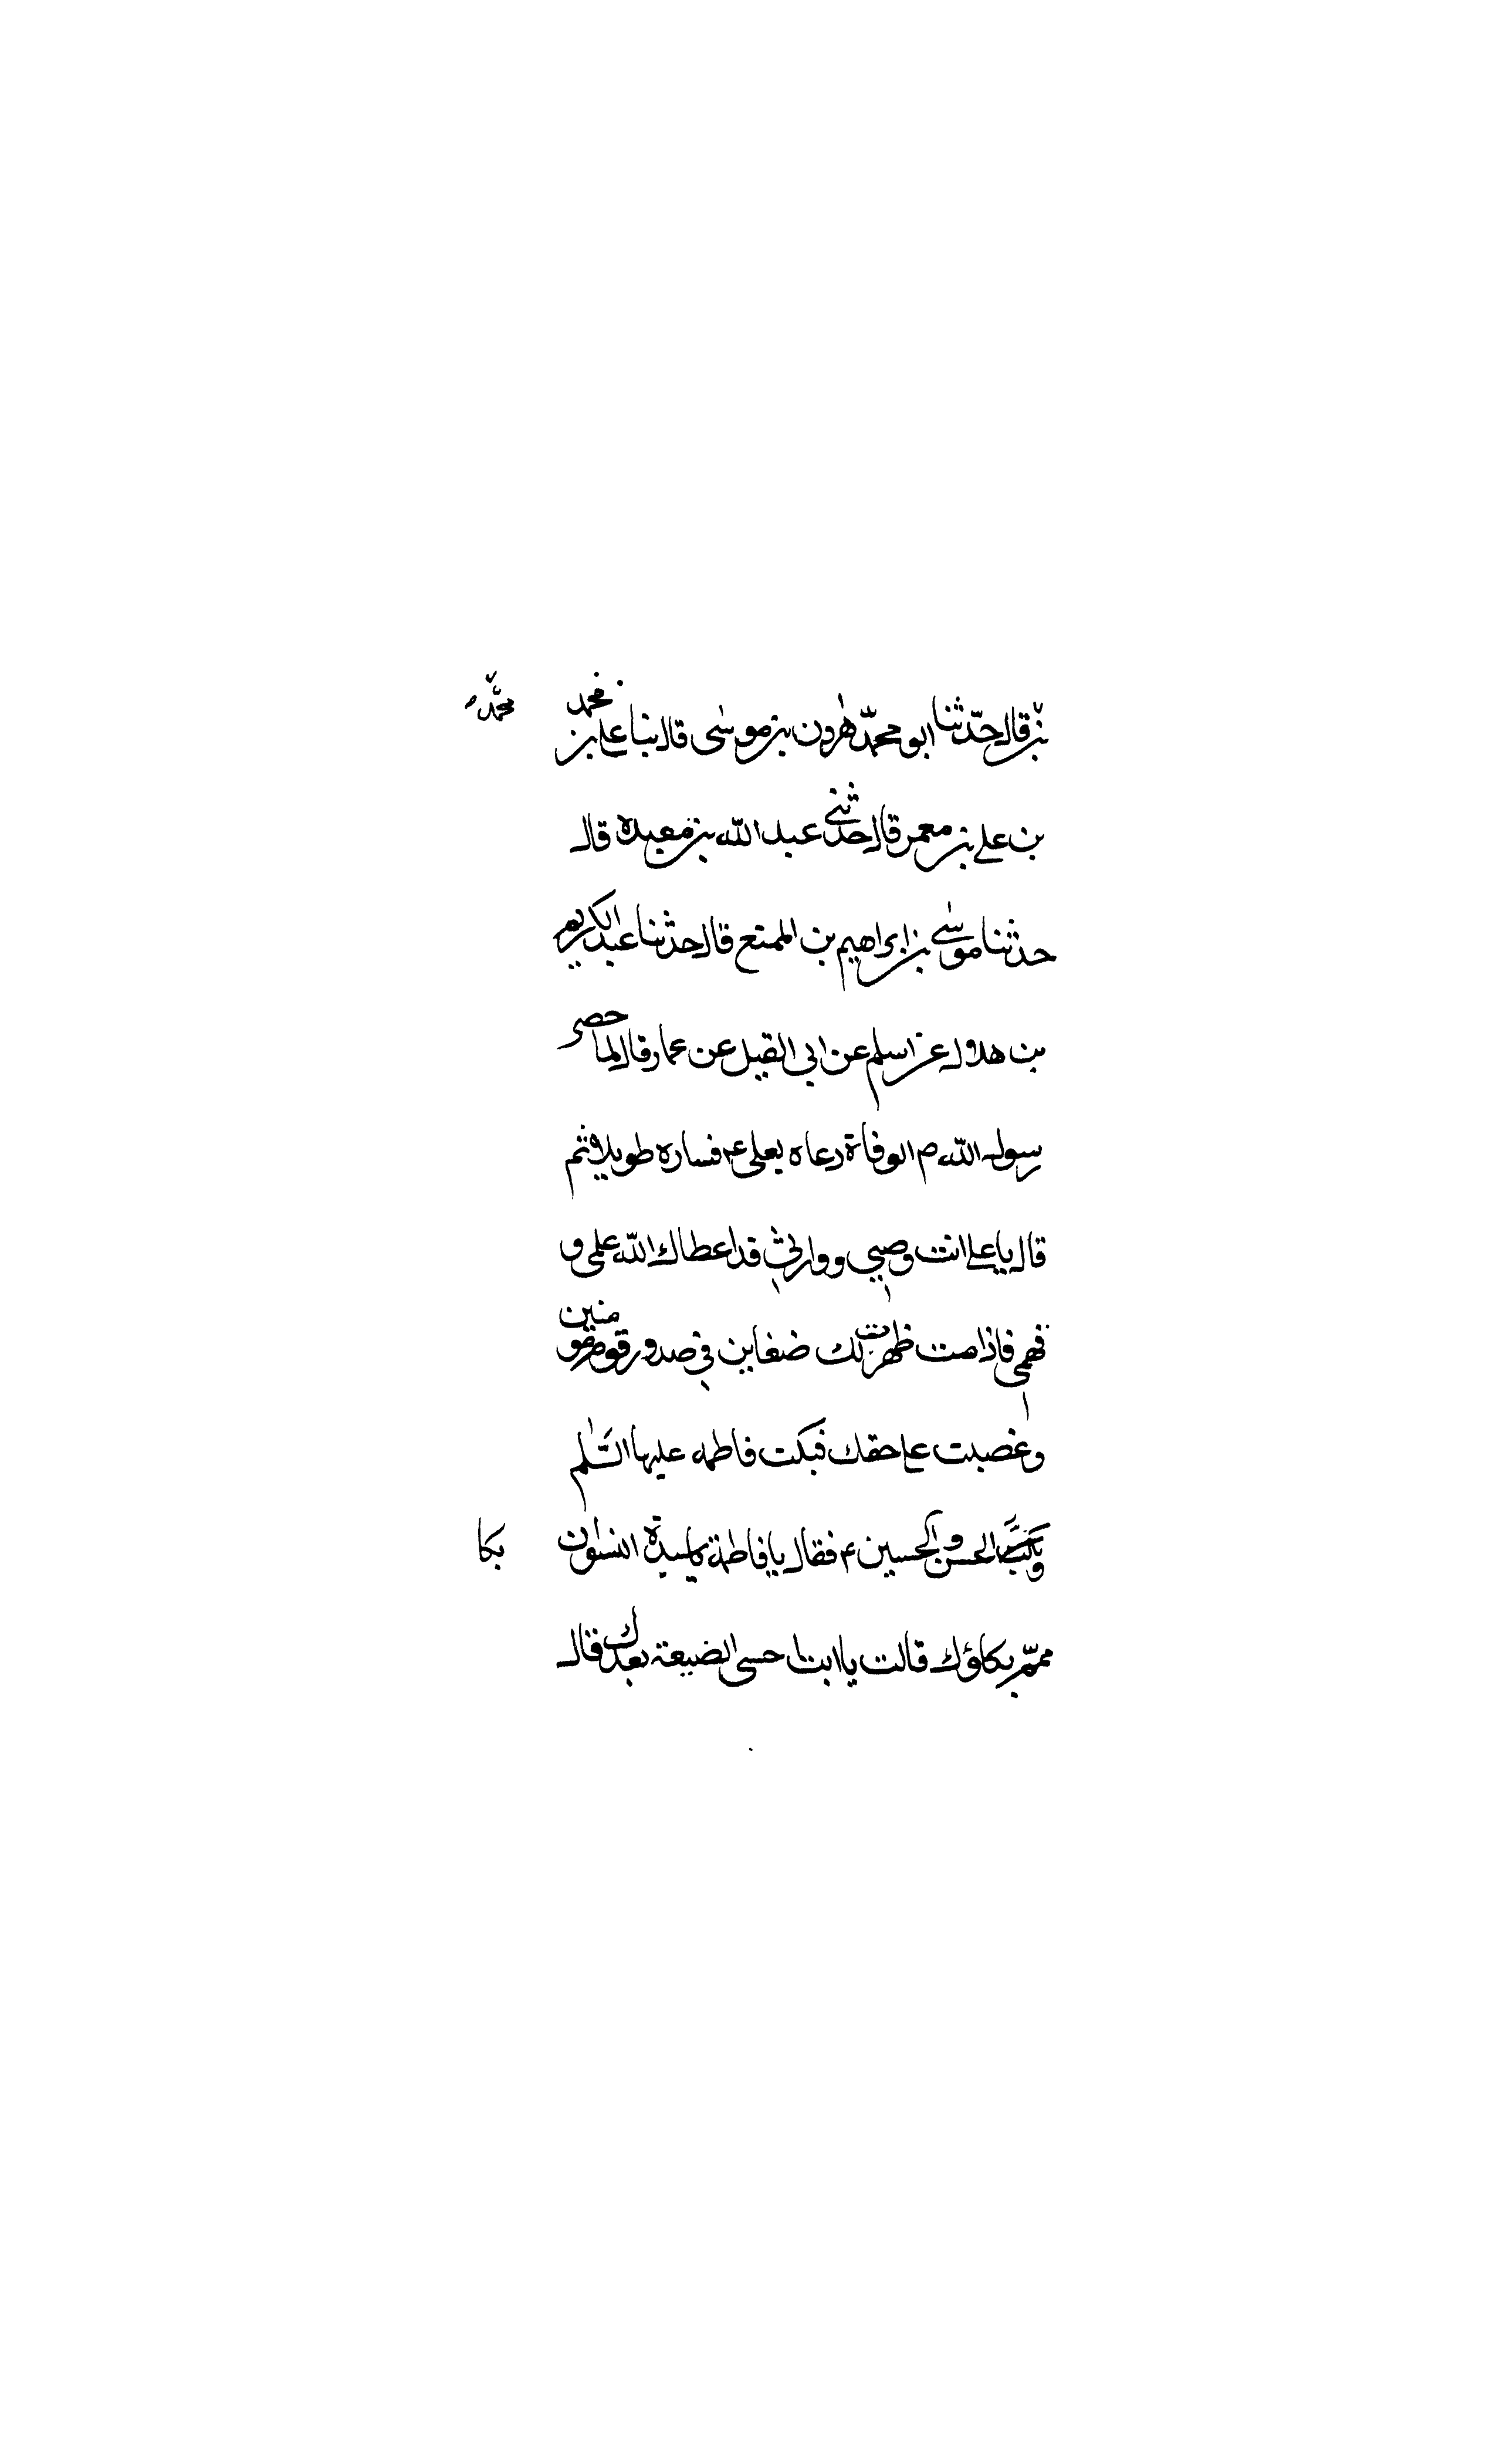 بن قال حدّثنا ابو محمّد هٰرون بن موسٰى قال ثنا على بن محمد
محمّد
بن على بن معمر قال حدثنى عبد الله بن معيده قال
حدثنا موسٰى بن ابراهيم بن الممتع قال حدثنا عبد الكريم
بن هلال عن اسلم عن ابى الفيل عن عمار قال لما حضر
رسول الله ص الوفاة دعاه بعلى ع فساره طويلا ثم
قال يا على انت وصيى ووارثى قد اعطاك الله علمى و
فهمى فاذا مت ظهرت لك ضغاين فى صدور قوم
وغصبت على حقك فبكت فاطمه عليها السّلٰم
الحسن و الحسين ع فقال يا فاطمة يا سيدة النسوان
بكا
ممّ بكاؤك قالت يا ابتا حسى الضيعة بعدك قال